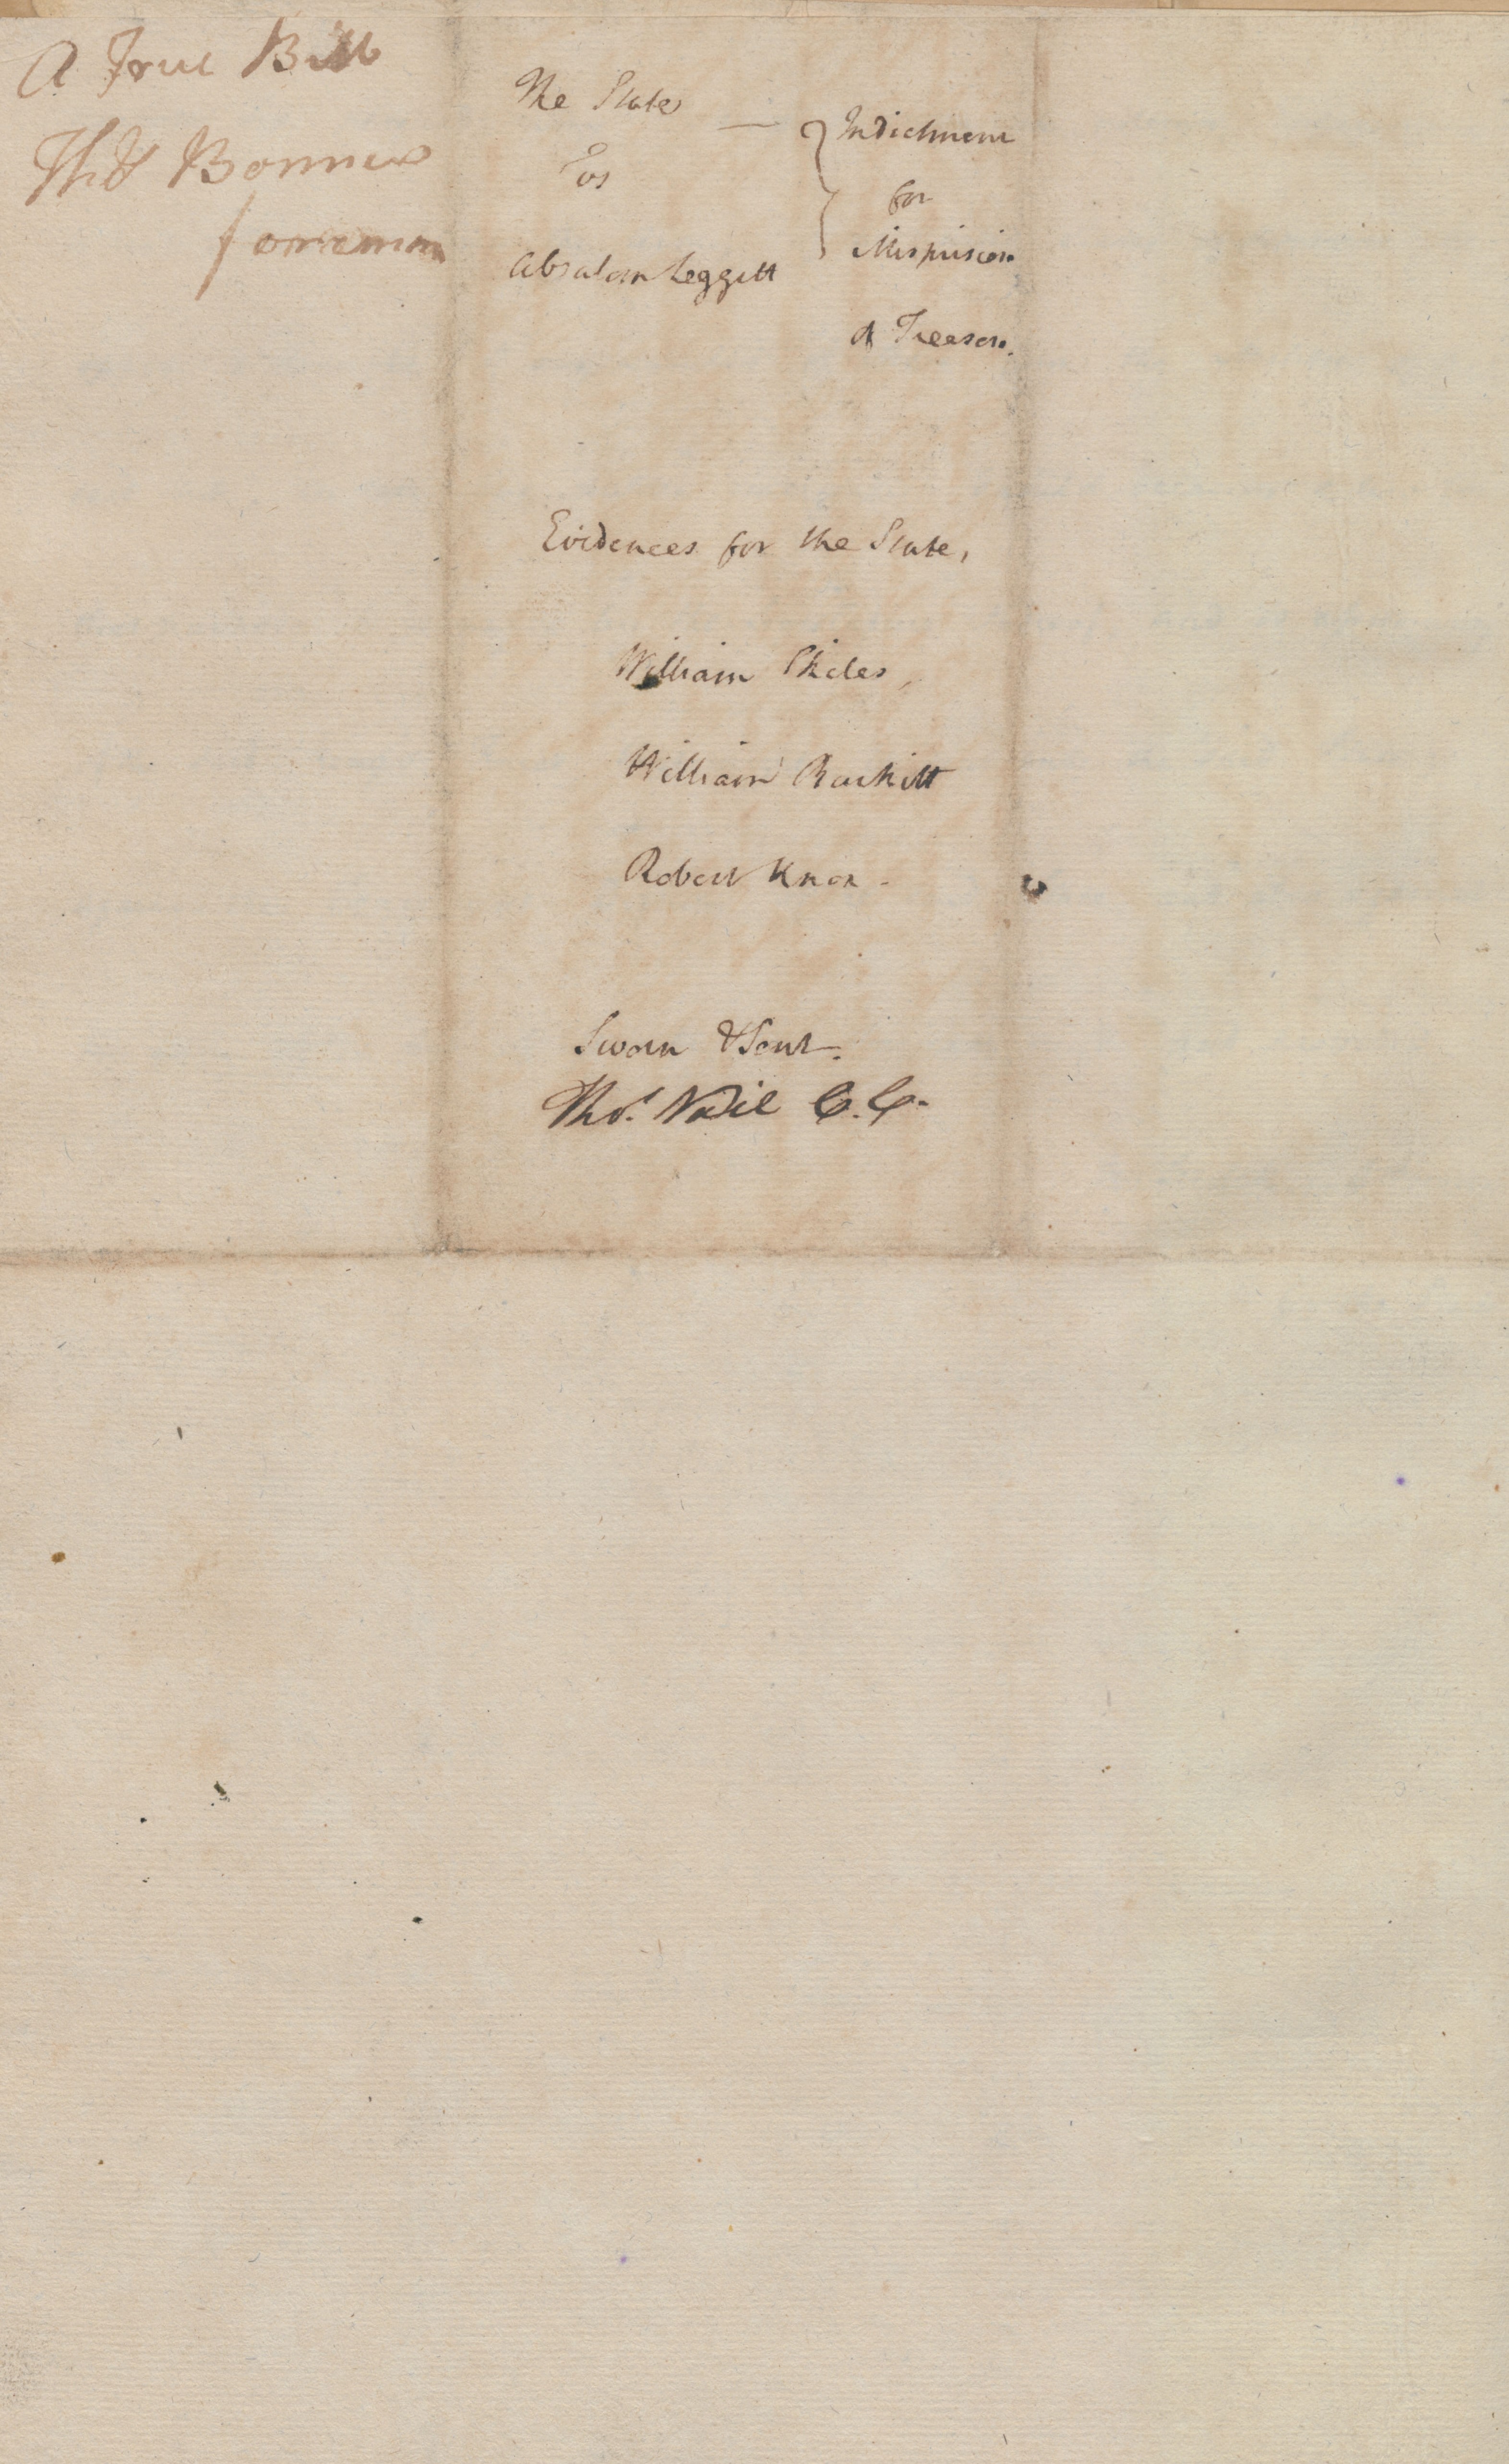 A True Bill
Bonner
forremun
The State
vs
Absalom Leggitt
Indictment
for
Misprision
of Treason.
Evidences for the State,
William Skiles,
William Rackitt
Robert Knox -
Sworn & Sent.
Tho.s C.C.